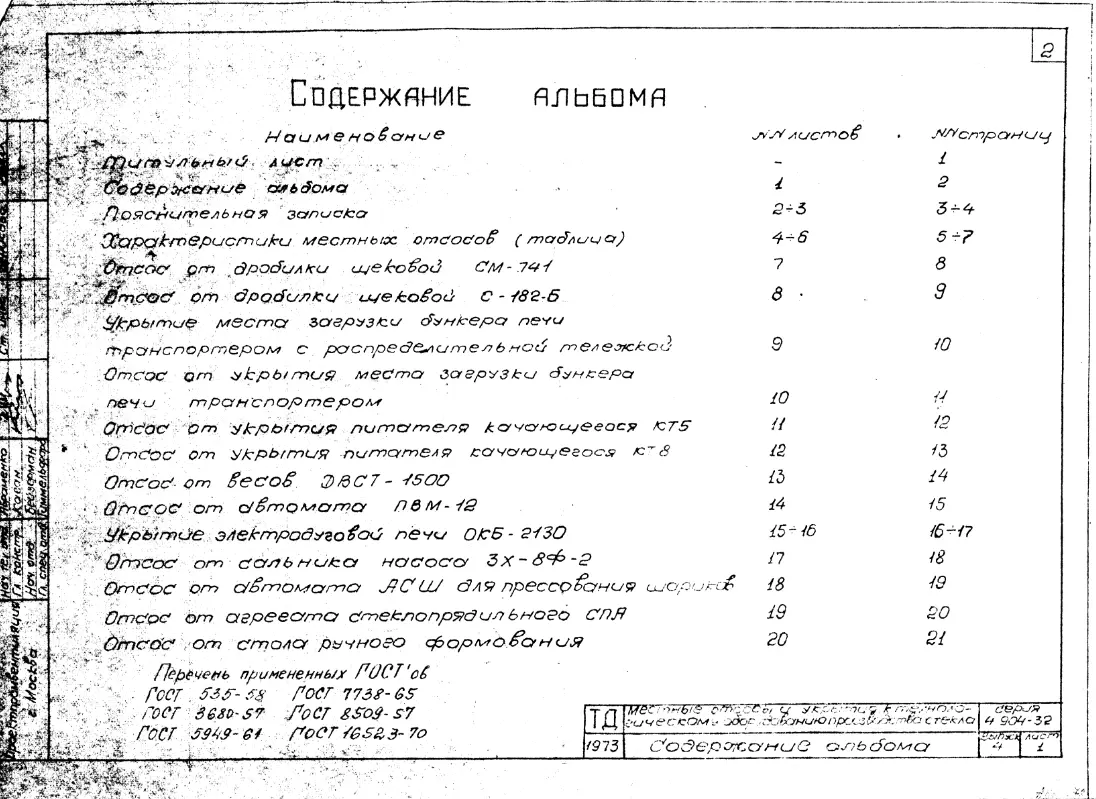 2
Содержание альбома
Наименование NN листов NN страниц
Титульный лист - 1
Содержание альбома 1 2
Пояснительная записка 2÷3 3÷4
Характеристики местных отсосов (таблица) 4÷6 5÷7
Отсос от дробилки щековой СМ-741 7 8
Отсос от дробилки щековой С-182-Б 8 9
Укрытие места загрузки бункера печи
транспортером с распределительной тележкой 9 10
Отсос от укрытия места загрузки бункера
печи транспортером 10 11
Отсос от укрытия питателя качающегося КТ5 11 12
Отсос от укрытия питателя качающегося КТ8 12 13
Отсос от весов ДВСТ-1500 13 14
Отсос от автомата ПВМ-12 14 15
Укрытие электродуговой печи ОКБ-2130 15÷16 16÷17
Отсос от сальника насоса 3Х-8Ф-2 17 18
Отсос от автомата АСШ для прессования шариков 18 19
Отсос от агрегата стеклопрядильного СПА 19 20
Отсос от стола ручного формования 20 21
Перечень примененных ГОСТ'ов
ГОСТ 535-58 ГОСТ 7738-65
ГОСТ 3680-57 ГОСТ 8509-57
ГОСТ 5949-61 ГОСТ 16523-70
ТД Местные отсосы и укрытия к техноло-
гическому оборудованию производства стекла
серия
4 904-32
1973 Содержание альбома
выпуск лист
4 1
Проектпромвентиляция
г. Москва
Нач. тех. отд. Авраменко
Гл. констр. Каган
Нач отд.
Гл. спец. отд.
Ст. инж.